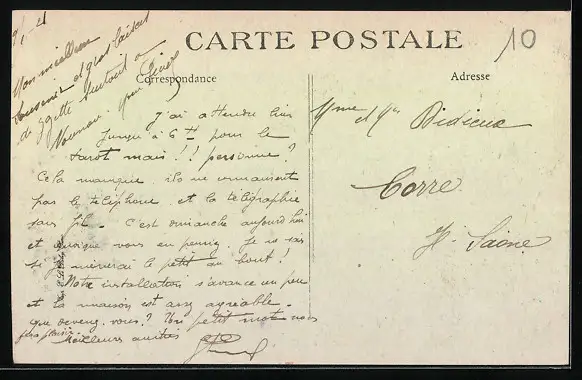 9/1-21
Mon meilleur
souvenir et gros baisers
à Ygette surtout à
CARTE POSTALE
10
Correspondance
Adresse
J'ai attendu hier
jusqu'à 6 H pour le
tarot mais !! personne ?
Cela manque, ils ne
par le téléphone et la télégraphie
sans fil. C'est dimanche aujourd'hui
et quoique vous en pensiez. Je ne sais
si je mènerai le petit au bout !
Notre installation s'avance un peu
et la maison est assez agréable.
que devenez vous ? Un petit mot nous
fera plaisir.
Meilleures amitiés
Mme et Mr Didieux
Corre
H. Saône